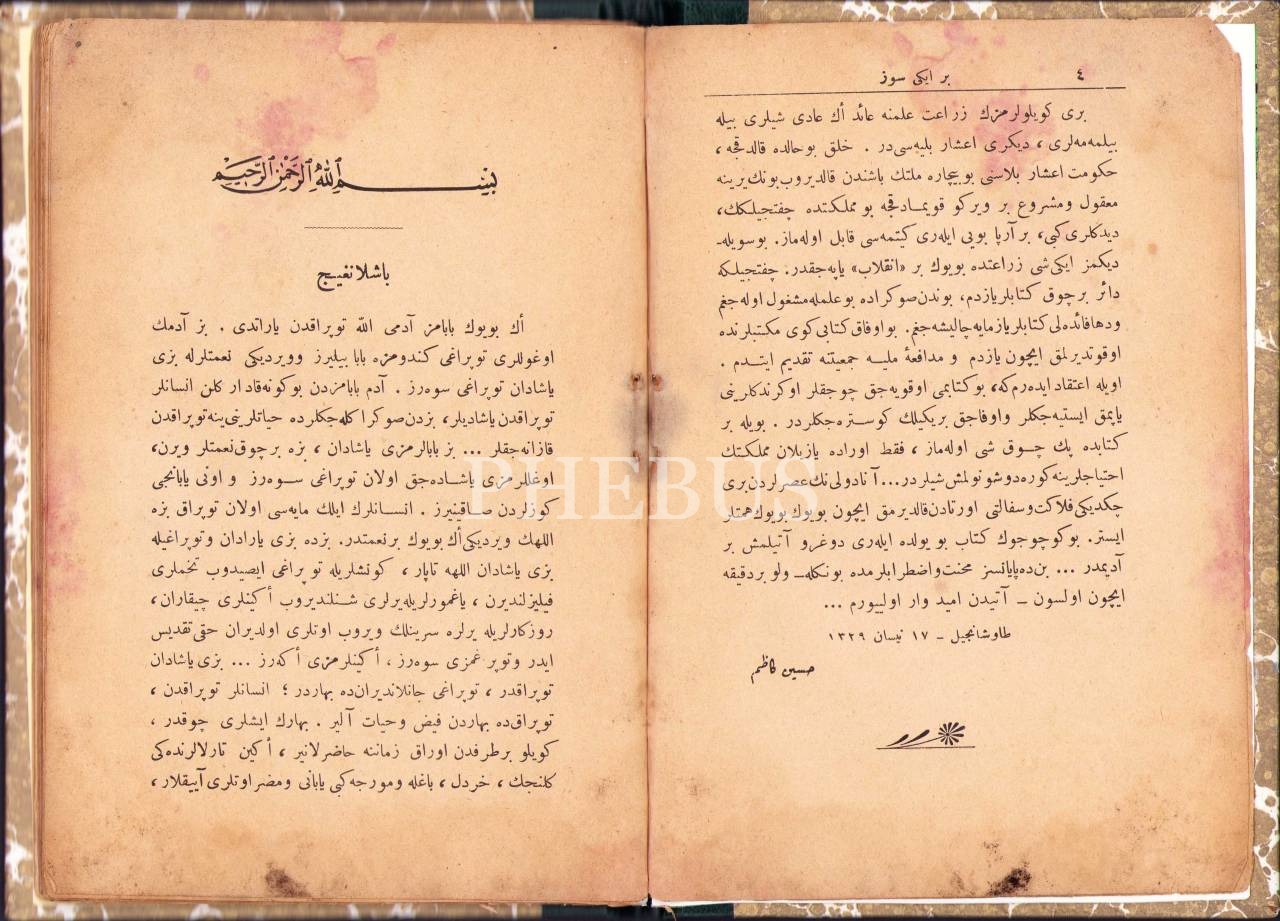 ٤
بر ایكی سوز
بری كویلولرمزك زراعت علمنه عائد اڭ عادی شیلری بیله
بیلمه مه لری ، دیكری اعشار بلیه سی در . خلق بو حالده قالدقجه ،
حكومت اعشار بلاسنی بو بیچاره ملتك باشندن قالدیروب بونك یرینه
معقول و مشروع بر ویركو قویمادقجه بو مملكتده چفتجیلكك،
دیدكلری كبی، بر آرپا بویی ایله ری كیتمه سی قابل اوله ماز. بو سویله-
دیكمز ایكی شی زراعتده بویوك بر «انقلاب» یاپه جقدر. چفتجیلكه
دائر بر چوق كتابلر یازدم، بوندن صوكراده بو علمله مشغول اوله جغم
ودها فائده لی كتابلر یازمایه چالیشه جغم. بو اوفاق كتابی كوی مكتبلرنده
اوقوتدیرلمق ایچون یازدم و مدافعۀ ملیه جمعیتنه تقدیم ایتدم .
اویله اعتقاد ایده رم كه، بو كتابمی اوقویه جق چوجقلر اوكرندكلرینی
یاپمق ایستیه جكلر و اوفاجق بر یكیلك كوستره جكلردر . بویله بر
كتابده پك چوق شی اوله ماز ، فقط اوراده یازیلان مملكتك
احتیاجلرینه كوره دوشونولمش شیلردر... آنادولی نك عصرلردن بری
چكدیكی فلاكت وسفالتی اورتادن قالدیرمق ایچون بویوك بویوك همتلر
ایستر. بو كوچوجوك كتاب بو یولده ایله ری دوغرو آتیلمش بر
آدیمدر ... بن ده پایانسز محنت واضطرابلرمده بونكله – ولو بر دقیقه
ایچون اولسون – آتیدن امید وار اولییورم ...
طاوشانجیل – ١٧ نیسان ١٣٢٩
حسین كاظم
بسم الله الرحمن الرحیم
باشلانغیج
اڭ بویوك بابامز آدمی الله توپراقدن یاراتدی . بز آدمك
اوغوللری توپراغی كندومزه بابا بیلیرز وویردیكی نعمتلرله بزی
یاشادان توپراغی سوه رز . آدم بابامزدن بوكونه قادار كلن انسانلر
توپراقدن یاشادیلر، بزدن صوكرا كله جكلرده حیاتلرینی ینه توپراقدن
قازانه جقلر ... بز بابالرمزی یاشادان ، بزه بر چوق نعمتلر ویرن،
اوغللرمزی یاشاده جق اولان توپراغی سوه رز و اونی یابانجی
كوزلردن صاقینیرز . انسانلرك ایلك مایه سی اولان توپراق بزه
اللهك ویردیكی اڭ بویوك بر نعمتدر. بزده بزی یارادان وتوپراغیله
بزی یاشادان اللهه تاپار ، كونشلریله توپراغی ایصیدوب تخملری
فیلیزلندیرن ، یاغمورلریله یرلری شنلندیروب اكینلری چیقاران،
روزكارلریله یرلره سرینلك ویروب اوتلری اولدیران حقی تقدیس
ایدر وتوپرغمزی سوه رز ، اكینلرمزی اكه رز ... بزی یاشادان
توپراقدر ، توپراغی جانلاندیران ده بهاردر ؛ انسانلر توپراقدن ،
توپراق ده بهاردن فیض وحیات آلیر . بهارك ایشلری چوقدر ،
كویلو بر طرفدن اوراق زماننه حاضرلانیر ، اكین تارلالرنده كی
كلنجك ، خردل ، باغله ومورجه كبی یابانی ومضر اوتلری آییقلار،
PHEBUS